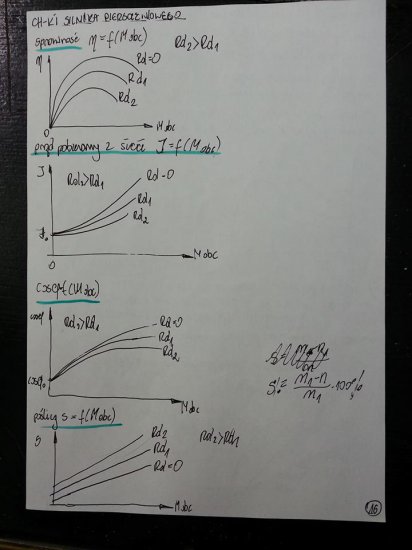 CH-KI SILNIKA PIERŚCIENIOWEGO
sprawność η = f(Mobc) Rd2>Rd1
η
Rd=0
Rd1
Rd2
0
Mobc
prąd pobierany z sieci J = f(Mobc)
J
Rd2>Rd1
Rd=0
Rd1
Rd2
J0
Mobc
0
cosφ f(Mobc)
cosφ
Rd2>Rd1
Rd=0
Rd1
Rd2
cosφ0
Mobc
S% = (n1-n)/n1 · 100%
poślizg s = f(Mobc)
S
Rd2
Rd2>Rd1
Rd1
Rd=0
Mobc
16